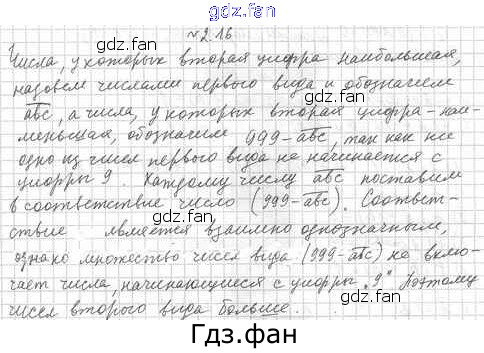 gdz.fan
№2.16
Числа, у которых вторая цифра наибольшая,
назовем числами первого вида и обозначаем
abc, а числа, у которых вторая цифра - наи-
меньшая, обозначим 999-abc, так как не
одно из чисел первого вида не начинается с
цифры 9. Каждому числу abc поставим
в соответствие число (999-abc). Соответ-
ствие является взаимно однозначным,
однако множество чисел вида (999-abc) не вклю-
чает числа, начинающиеся с цифры „9" Поэтому
чисел второго вида больше.
Гдз.фан